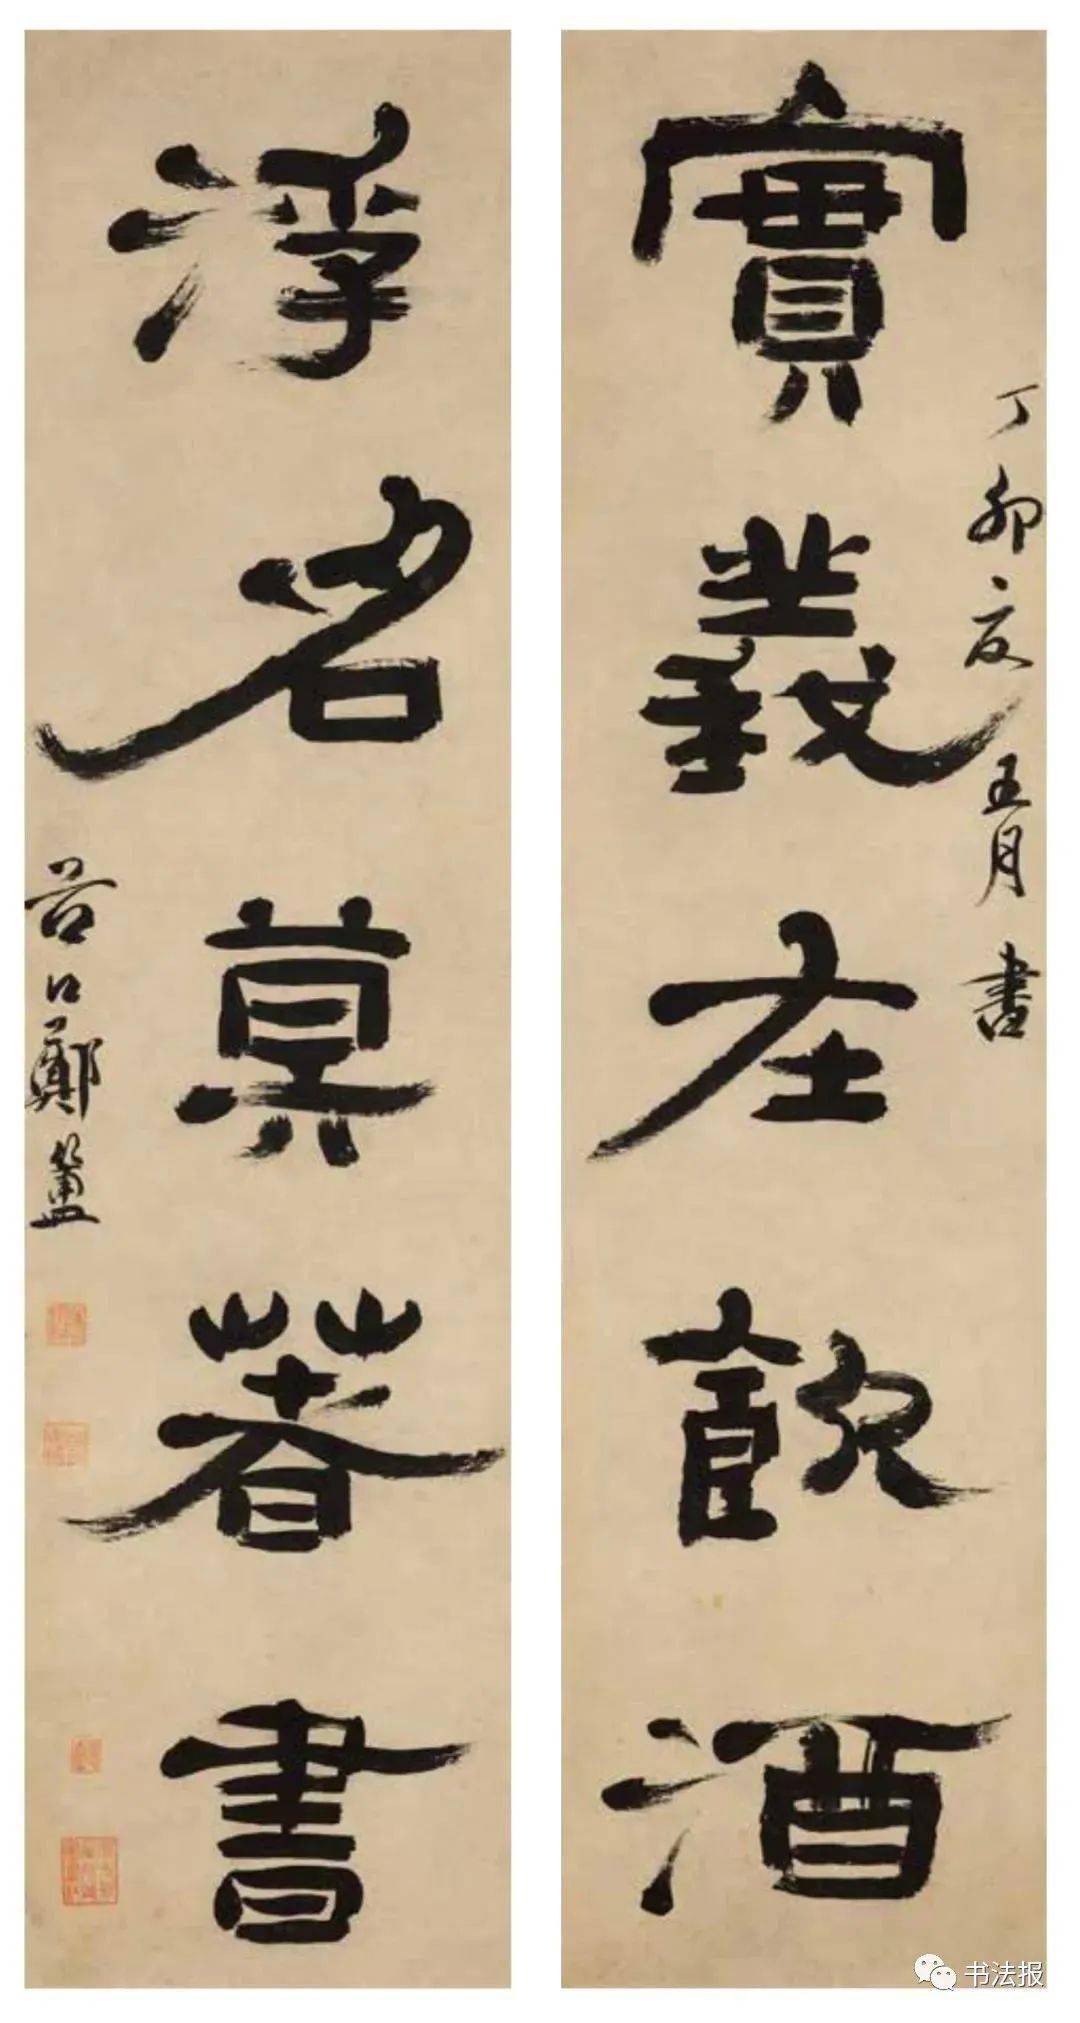 實義在飲酒
丁卯夏五月書
浮名莫著書
谷口鄭簠
书法报